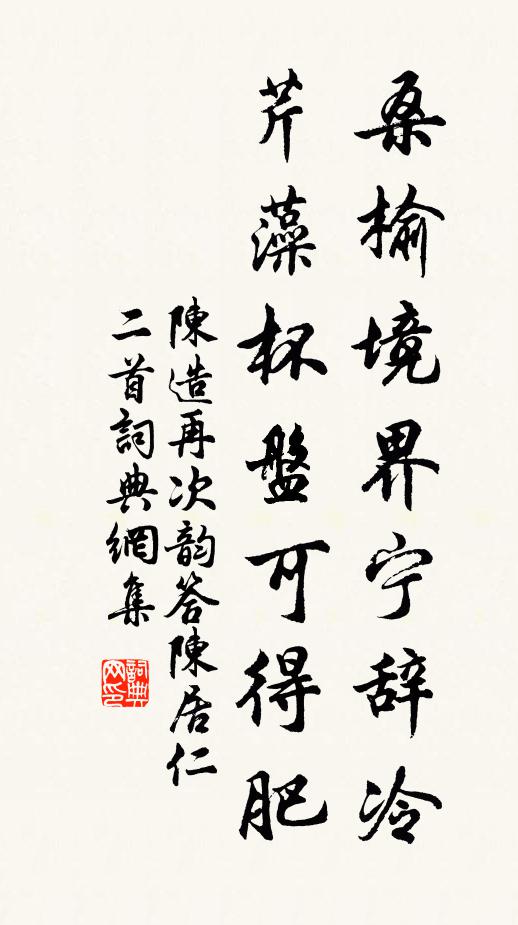 桑榆境界宁辞冷
芹藻杯盤可得肥
陳造再次韵答陳居仁
二首詞典網集
詞典
网印